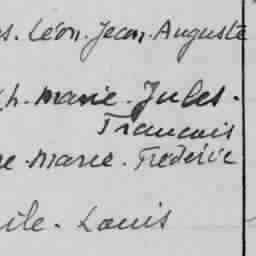 s. Léon. Jean. Auguste
h. Marie. Jules.
Francois
e. Marie. Frédéric
ile. Louis